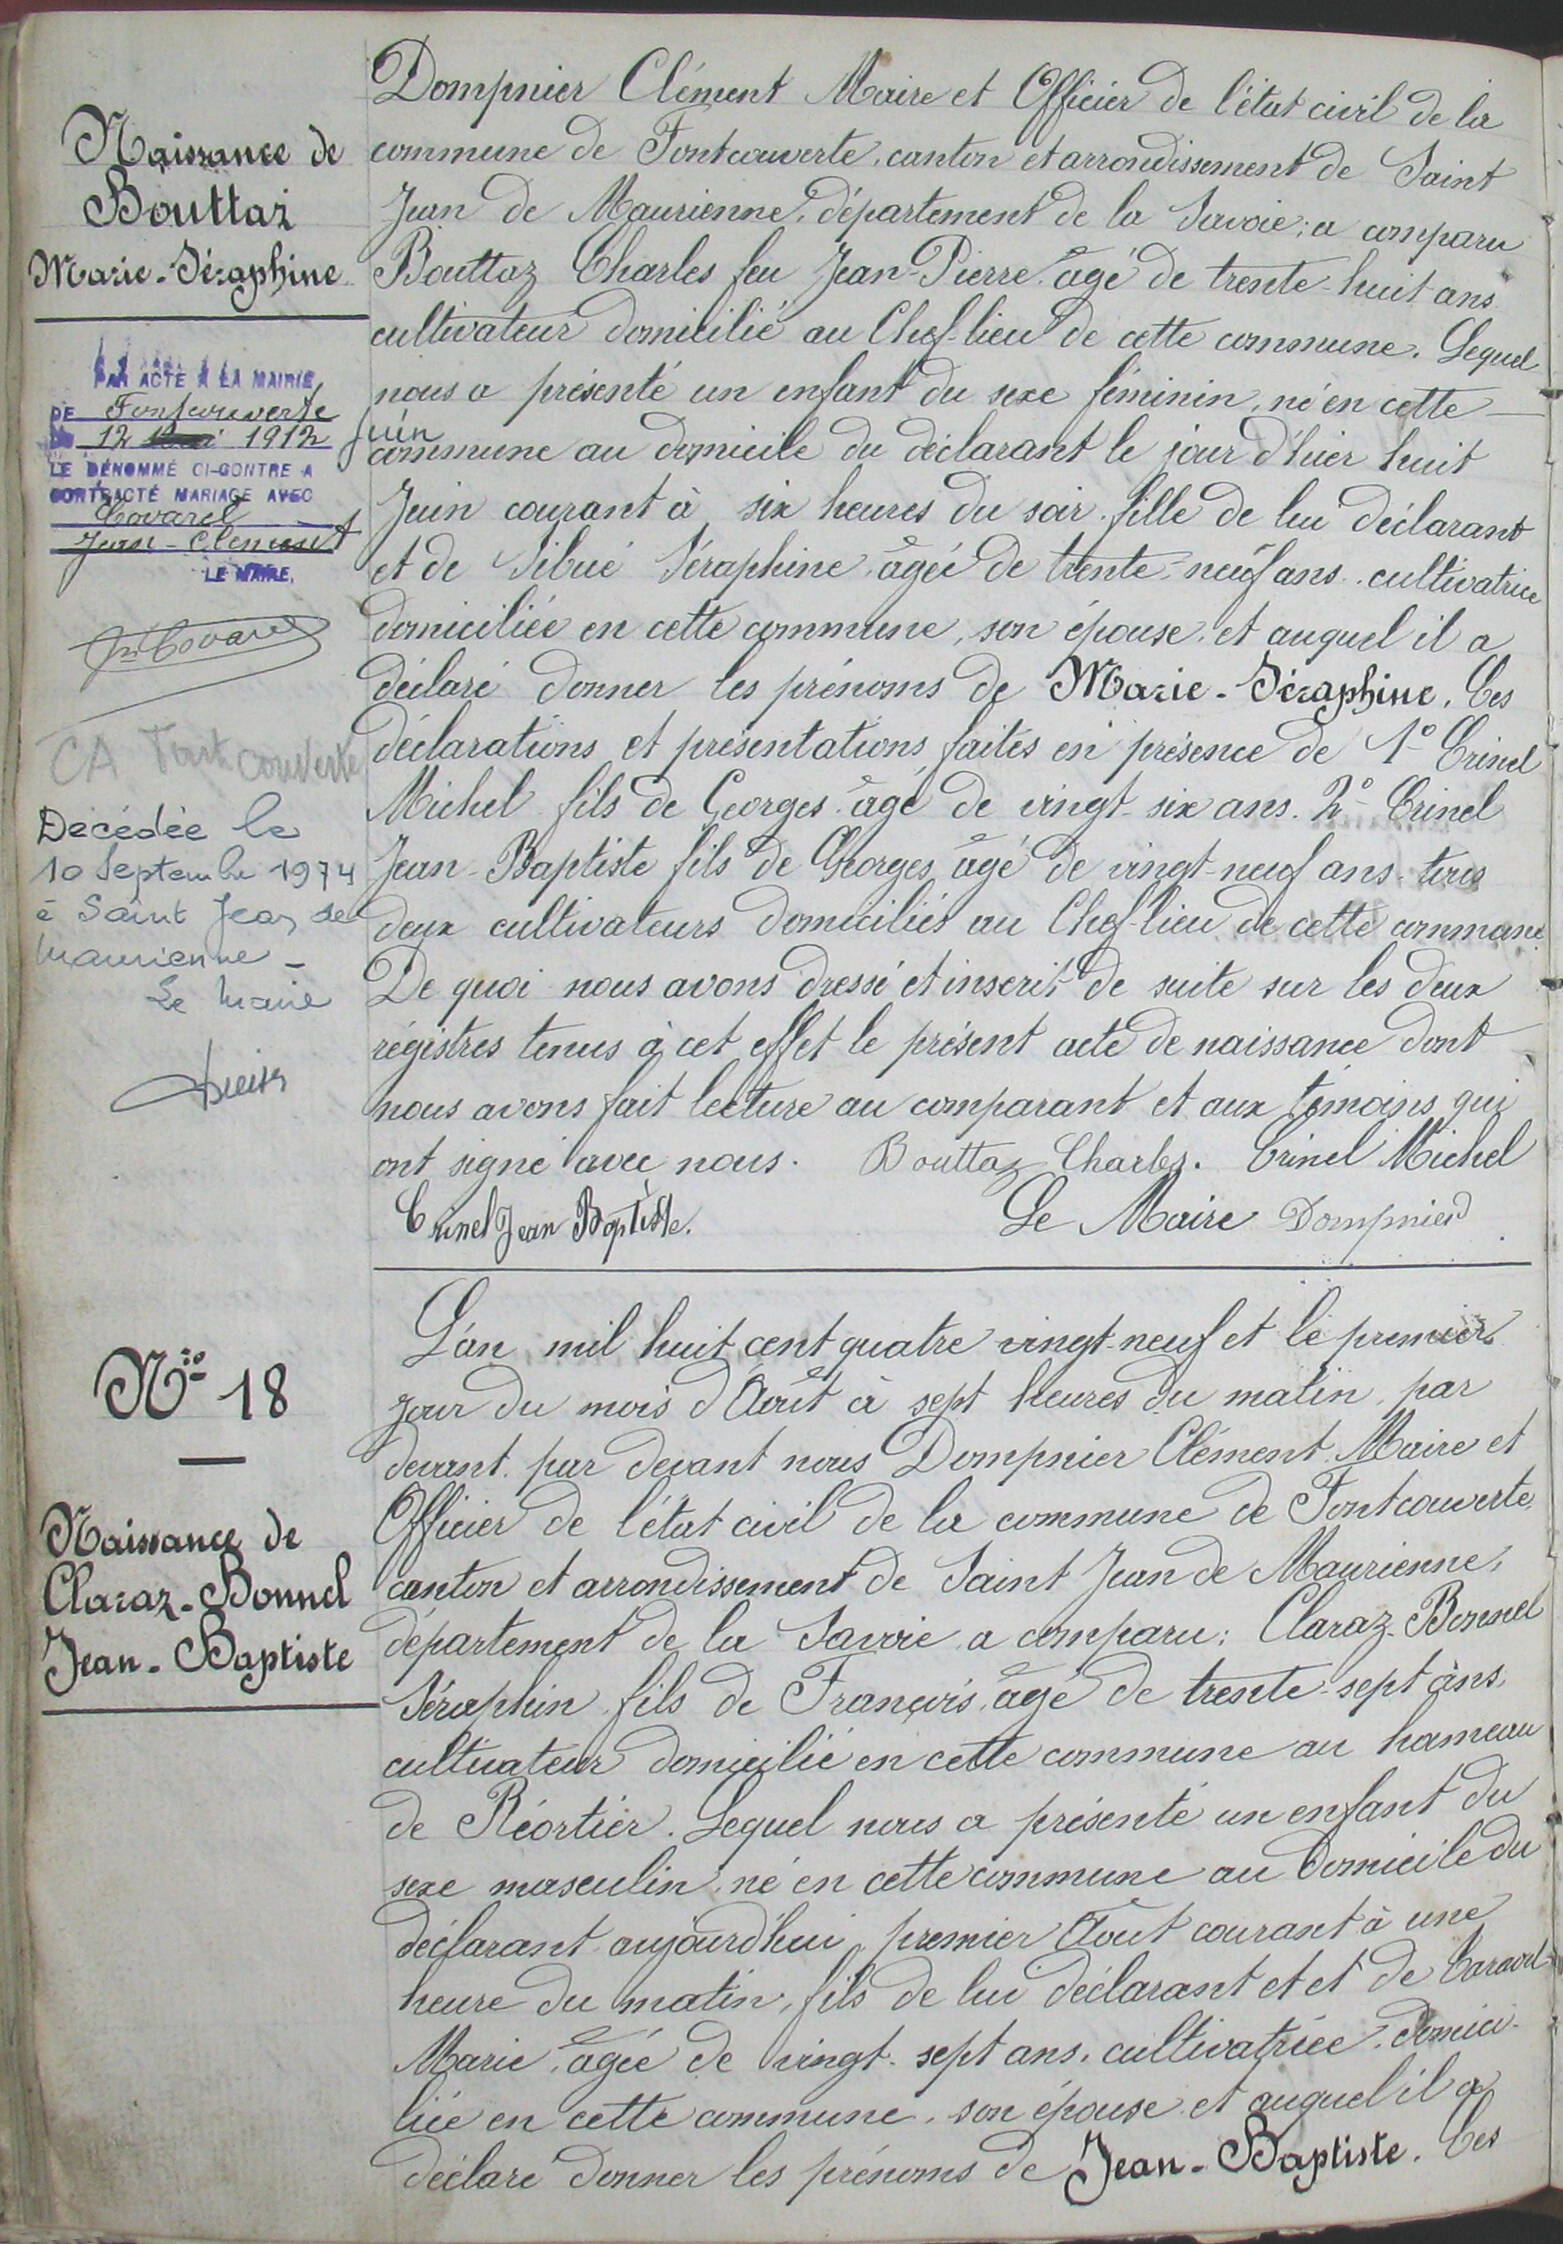 Naissance de
Bouttaz
Marie-Séraphine
PAR ACTE A LA MAIRIE
DE Fontcouverte
12 juin 1912
LE DÉNOMMÉ CI-CONTRE A
CONTRACTÉ MARIAGE AVEC
Covarel
Jean-Clément
LE MAIRE,
Covarel
CA Fontcouverte
Décédée le
10 Septembre 1974
à Saint Jean de
Maurienne -
Le Maire
Dompnier Clément Maire et Officier de l'état civil de la
commune de Fontcouverte, canton et arrondissement de Saint
Jean de Maurienne, département de la Savoie; a comparu
Bouttaz Charles feu Jean-Pierre âgé de trente-huit ans
cultivateur domicilié au Chef-lieu de cette commune. Lequel
nous a présenté un enfant du sexe féminin, né en cette
commune au domicile du déclarant le jour d'hier huit
Juin courant à six heures du soir, fille de lui déclarant
et de Sibué Séraphine, âgée de trente-neuf ans, cultivatrice
domiciliée en cette commune, son épouse, et auquel il a
déclaré donner les prénoms de Marie-Séraphine. Ces
déclarations et présentations faites en présence de 1° Crinel
Michel fils de Georges âgé de vingt-six ans. 2° Crinel
Jean-Baptiste fils de Georges, âgé de vingt-neuf ans, tous
deux cultivateurs domiciliés au Chef-lieu de cette commune.
De quoi nous avons dressé et inscrit de suite sur les deux
régistres tenus à cet effet le présent acte de naissance dont
nous avons fait lecture au comparant et aux témoins qui
ont signé avec nous. Bouttaz Charles. Crinel Michel
Crinel Jean Baptiste. Le Maire Dompnier
N° 18
Naissance de
Claraz-Bonnel
Jean-Baptiste
L'an mil huit cent quatre vingt-neuf et le premier
jour du mois d'Août à sept heures du matin, par
devant par devant nous Dompnier Clément Maire et
Officier de l'état civil de la commune de Fontcouverte,
canton et arrondissement de Saint Jean de Maurienne,
département de la Savoie a comparu: Claraz-Bonnel
Séraphin, fils de François, âgé de trente-sept ans,
cultivateur domicilié en cette commune au hameau
de Réortier. Lequel nous a présenté un enfant du
sexe masculin, né en cette commune au domicile du
déclarant aujourd'hui premier Août courant à une
heure du matin, fils de lui déclarant et et de
Marie, âgée de vingt-sept ans, cultivatrice, domici-
liée en cette commune, son épouse et auquel il a
déclaré donner les prénoms de Jean-Baptiste. Ces